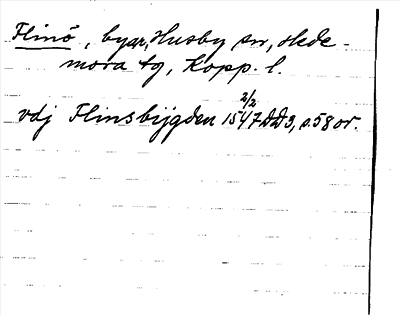 Flinö, byar, Husby sn, Hede-
mora tg, Kopp. l.
2/2
vdj Flinsbijgden 1547 DD3, s.58 or.